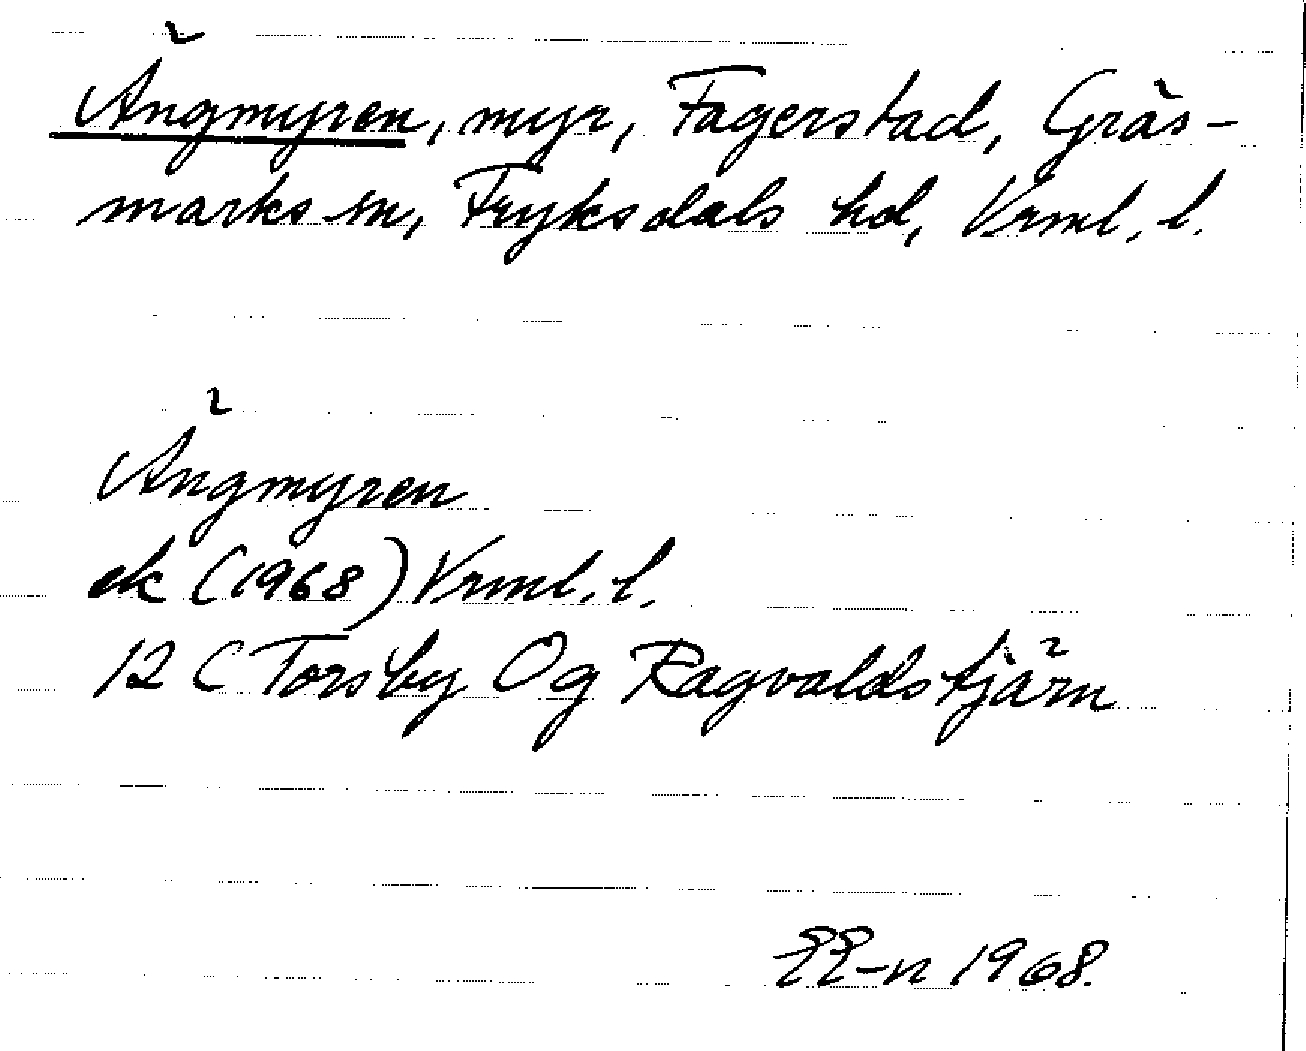 Ängmyren, myr, Fagerstad, Gräs-
marks sn, Fryksdals hd, Vrml. l.
Ängmyren
ek (1968) Vrml. l.
12 C Torsby Og Ragvaldstjärn
EE-n 1968.